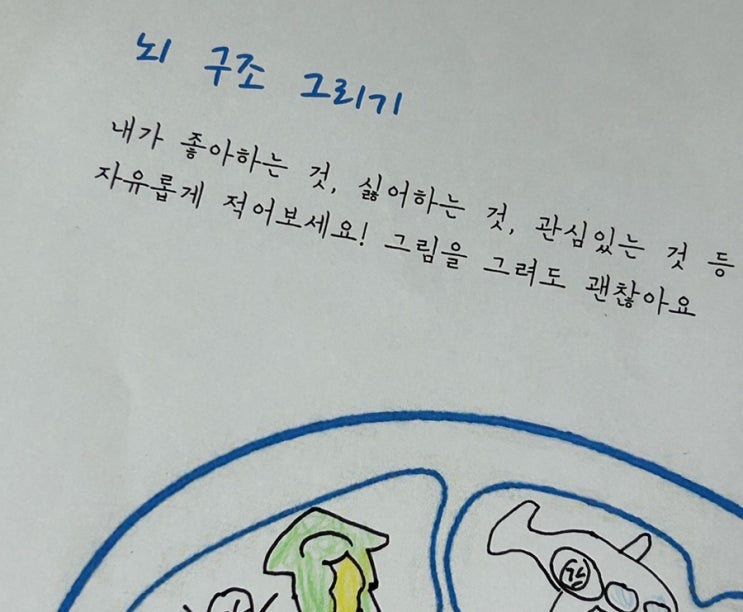 뇌 구조 그리기
내가 좋아하는 것, 싫어하는 것, 관심있는 것 등
자유롭게 적어보세요! 그림을 그려도 괜찮아요